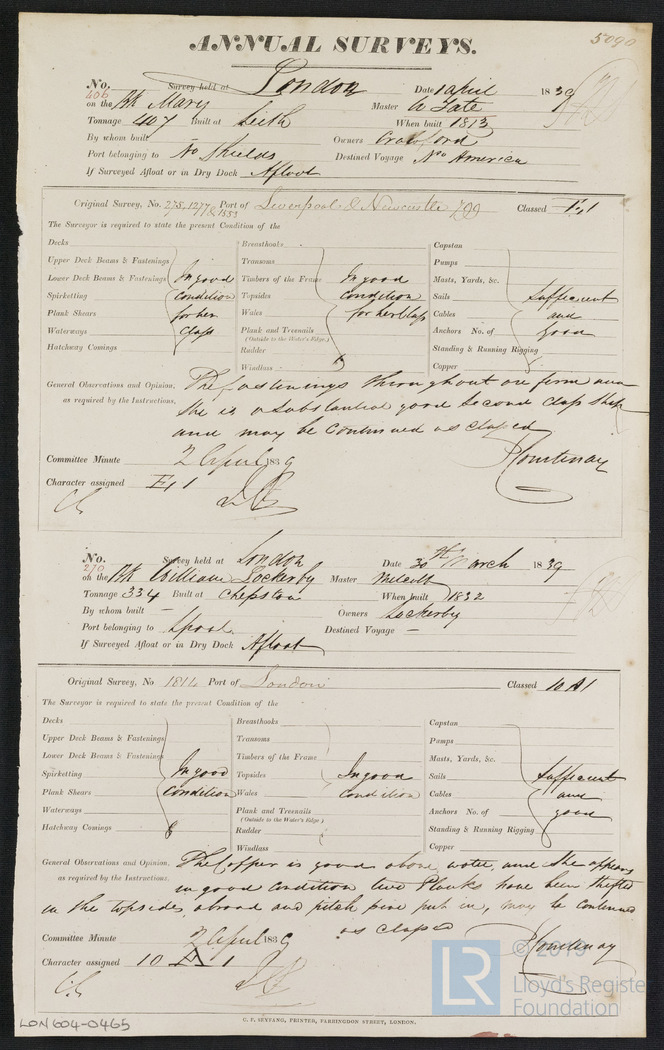 5090
ANNUAL SURVEYS.
No. 406 Survey held at London Date 1 April 1839
on the Bk Mary Master W Tate
Tonnage 407 Built at Leith When built 1813
By whom built — Owners Crawford
Port belonging to No Shields Destined Voyage No America
If Surveyed Afloat or in Dry Dock Afloat
Original Survey, No. 275, 1277 & 1553 Port of Liverpool & Newcastle 799 Classed Æ 1
The Surveyor is required to state the present Condition of the
Decks
Upper Deck Beams & Fastenings
Lower Deck Beams & Fastenings In good
Spirketting condition
Plank Shears for her
Waterways Class
Hatchway Comings
Breasthooks
Transoms
Timbers of the Frame In good
Topsides condition
Wales for her Class
Plank and Treenails
(Outside to the Water's Edge.)
Rudder
Windlass
Capstan
Pumps
Masts, Yards, &c.
Sails Sufficient
Cables and
Anchors No. of good
Standing & Running Rigging
Copper
General Observations and Opinion, The fastenings throughout are firm and
as required by the Instructions. She is a substantial good Second Class Ship
and may be continued as classed
Committee Minute 2 April 1839 Courtenay
Character assigned Æ 1
No. 270 Survey held at London Date 30th March 1839
on the Bk William Lockerby Master
Tonnage 334 Built at Chepstow When built 1832
By whom built — Owners Lockerby
Port belonging to Lpool Destined Voyage —
If Surveyed Afloat or in Dry Dock Afloat
Original Survey, No 1814 Port of London Classed 10 A1
The Surveyor is required to state the present Condition of the
Decks
Upper Deck Beams & Fastenings
Lower Deck Beams & Fastenings
Spirketting In good
Plank Shears Condition
Waterways
Hatchway Comings
Breasthooks
Transoms
Timbers of the Frame
Topsides In good
Wales condition
Plank and Treenails
(Outside to the Water's Edge)
Rudder
Windlass
Capstan
Pumps
Masts, Yards, &c.
Sails Sufficient
Cables and
Anchors No. of good
Standing & Running Rigging
Copper
General Observations and Opinion, The Copper is good above water, and she appears
as required by the Instructions. in good condition two Planks have been shifted
in the topsides, aboard and pitch pine put in, may be continued
as classed
Committee Minute 2 April 1839 Courtenay
Character assigned 10 A 1
© 2019
LR Lloyd's Register
Foundation
LON604-0465
C. F. SEYFANG, PRINTER, FARRINGDON STREET, LONDON.